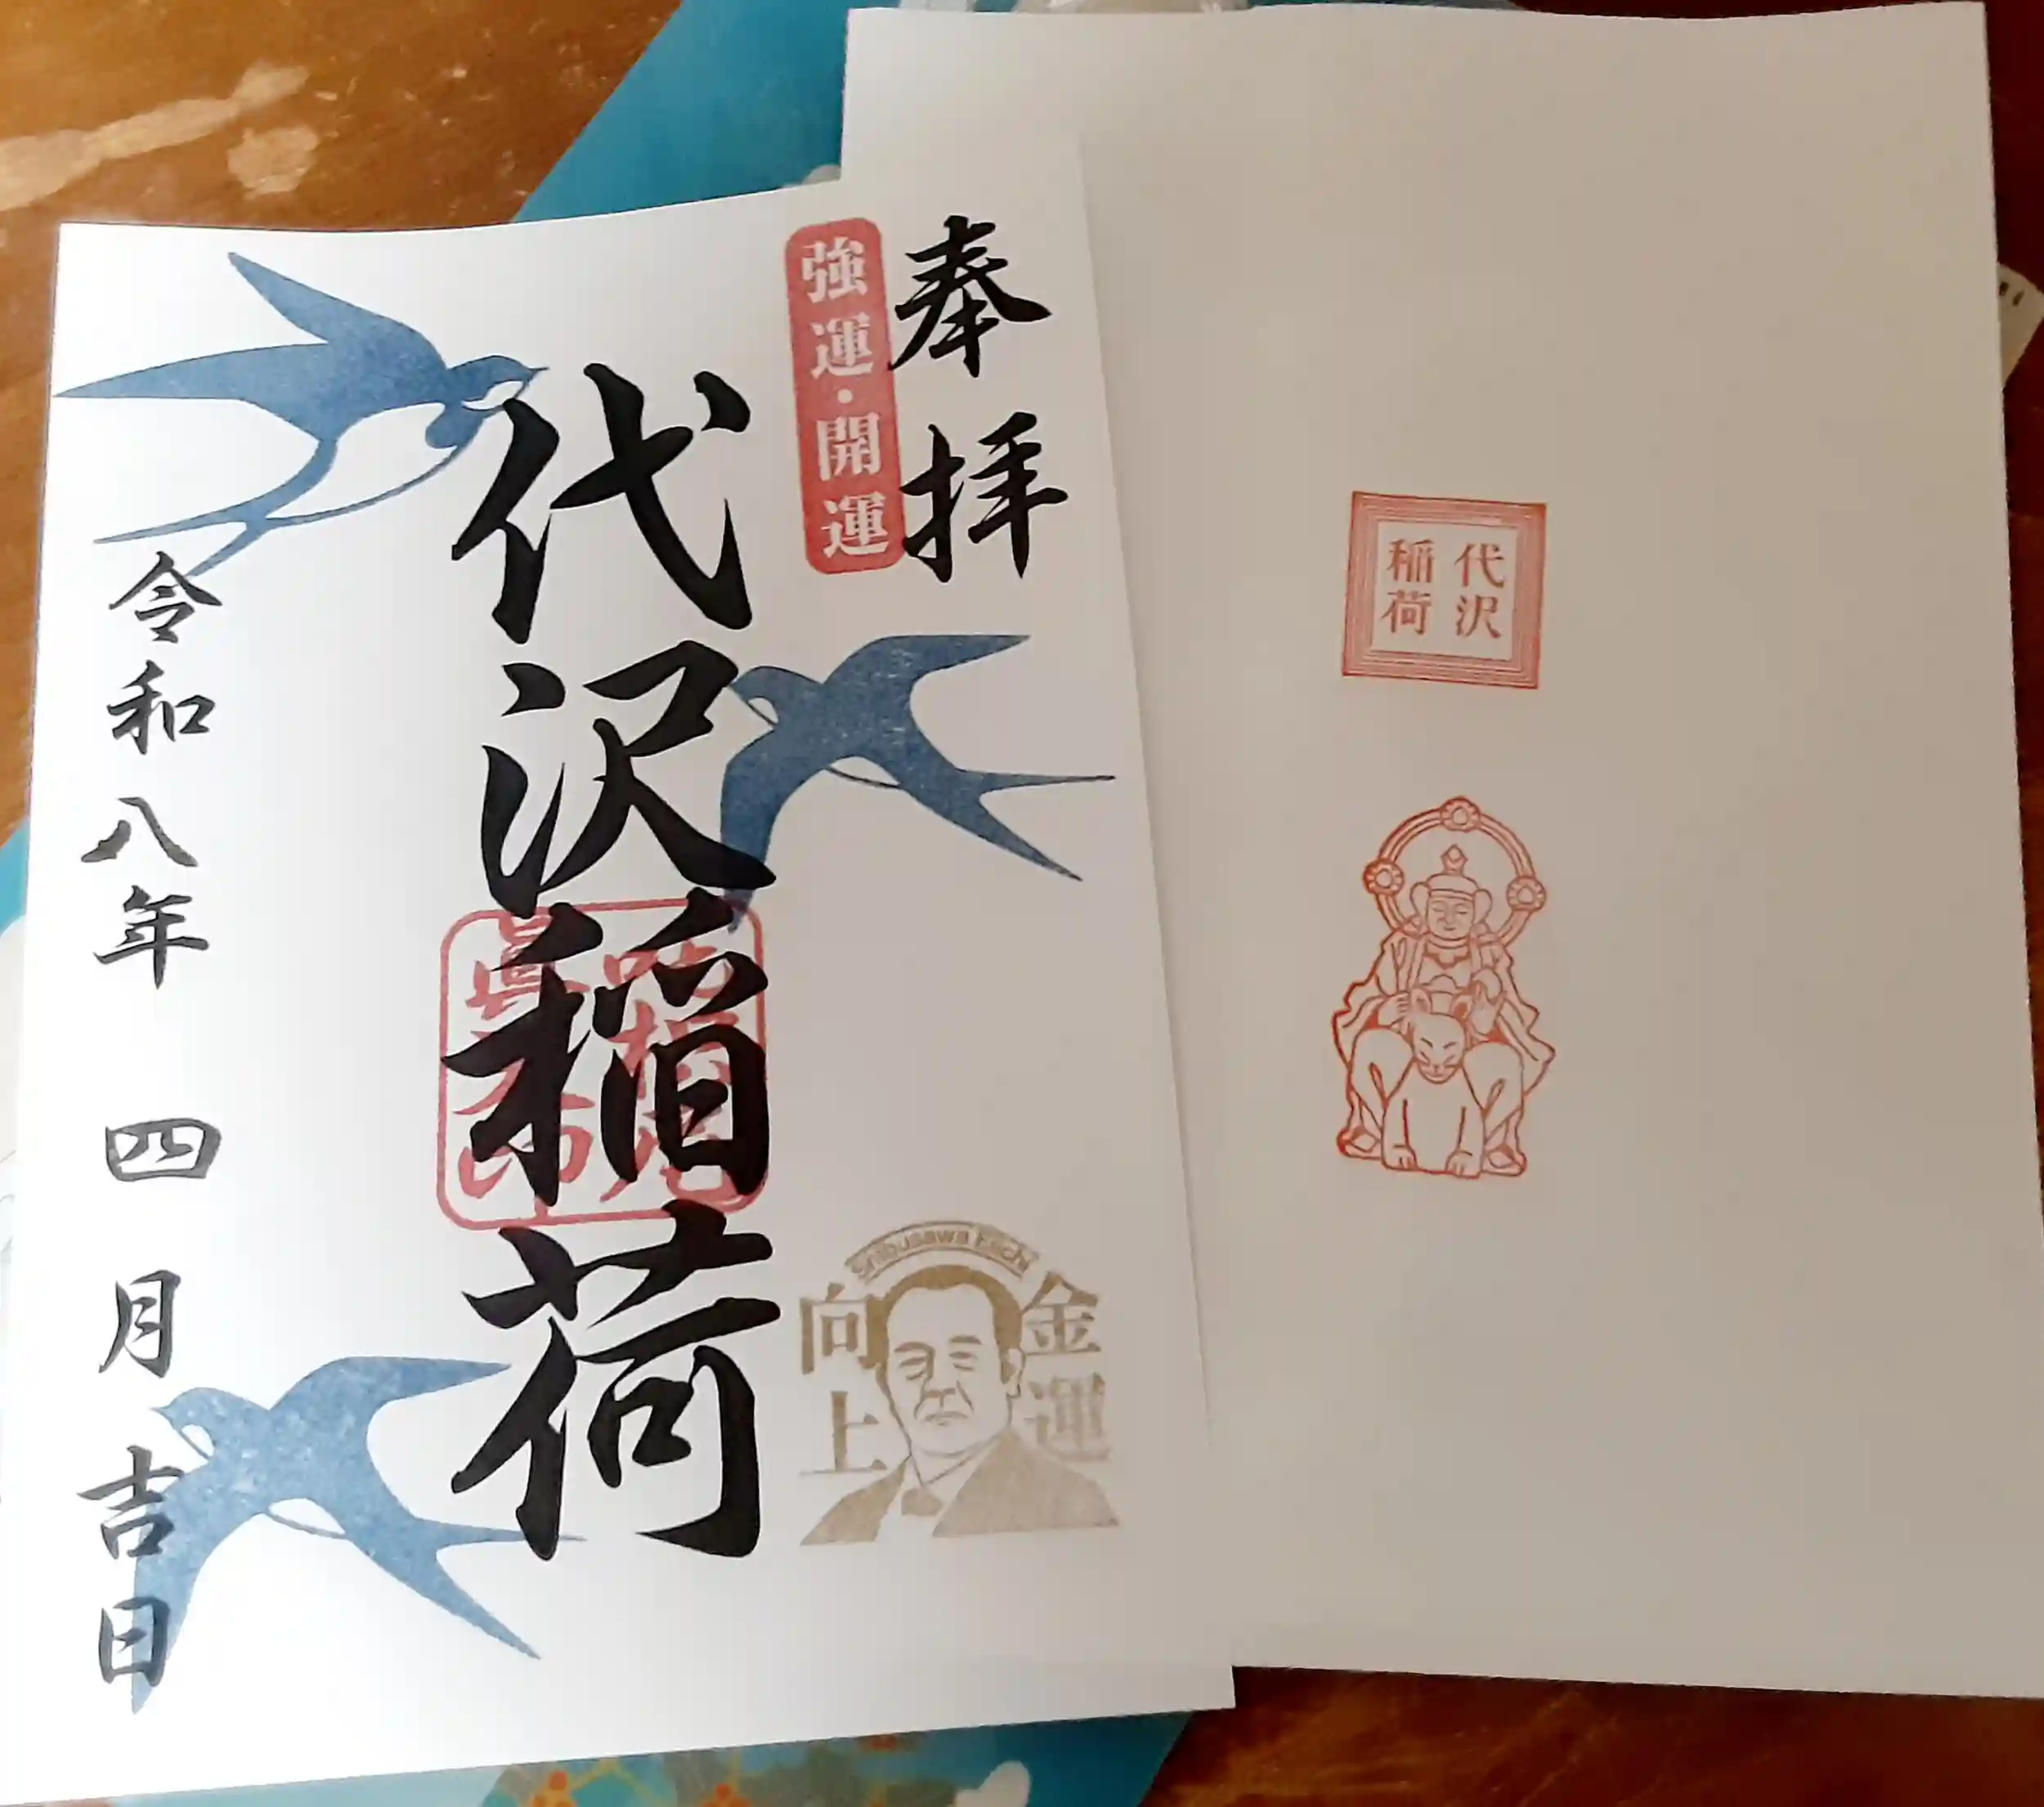 奉拝
強運・開運
代沢稲荷
令和八年 四月吉日
Shibusawa Eiichi
金運
向上
代沢
稲荷